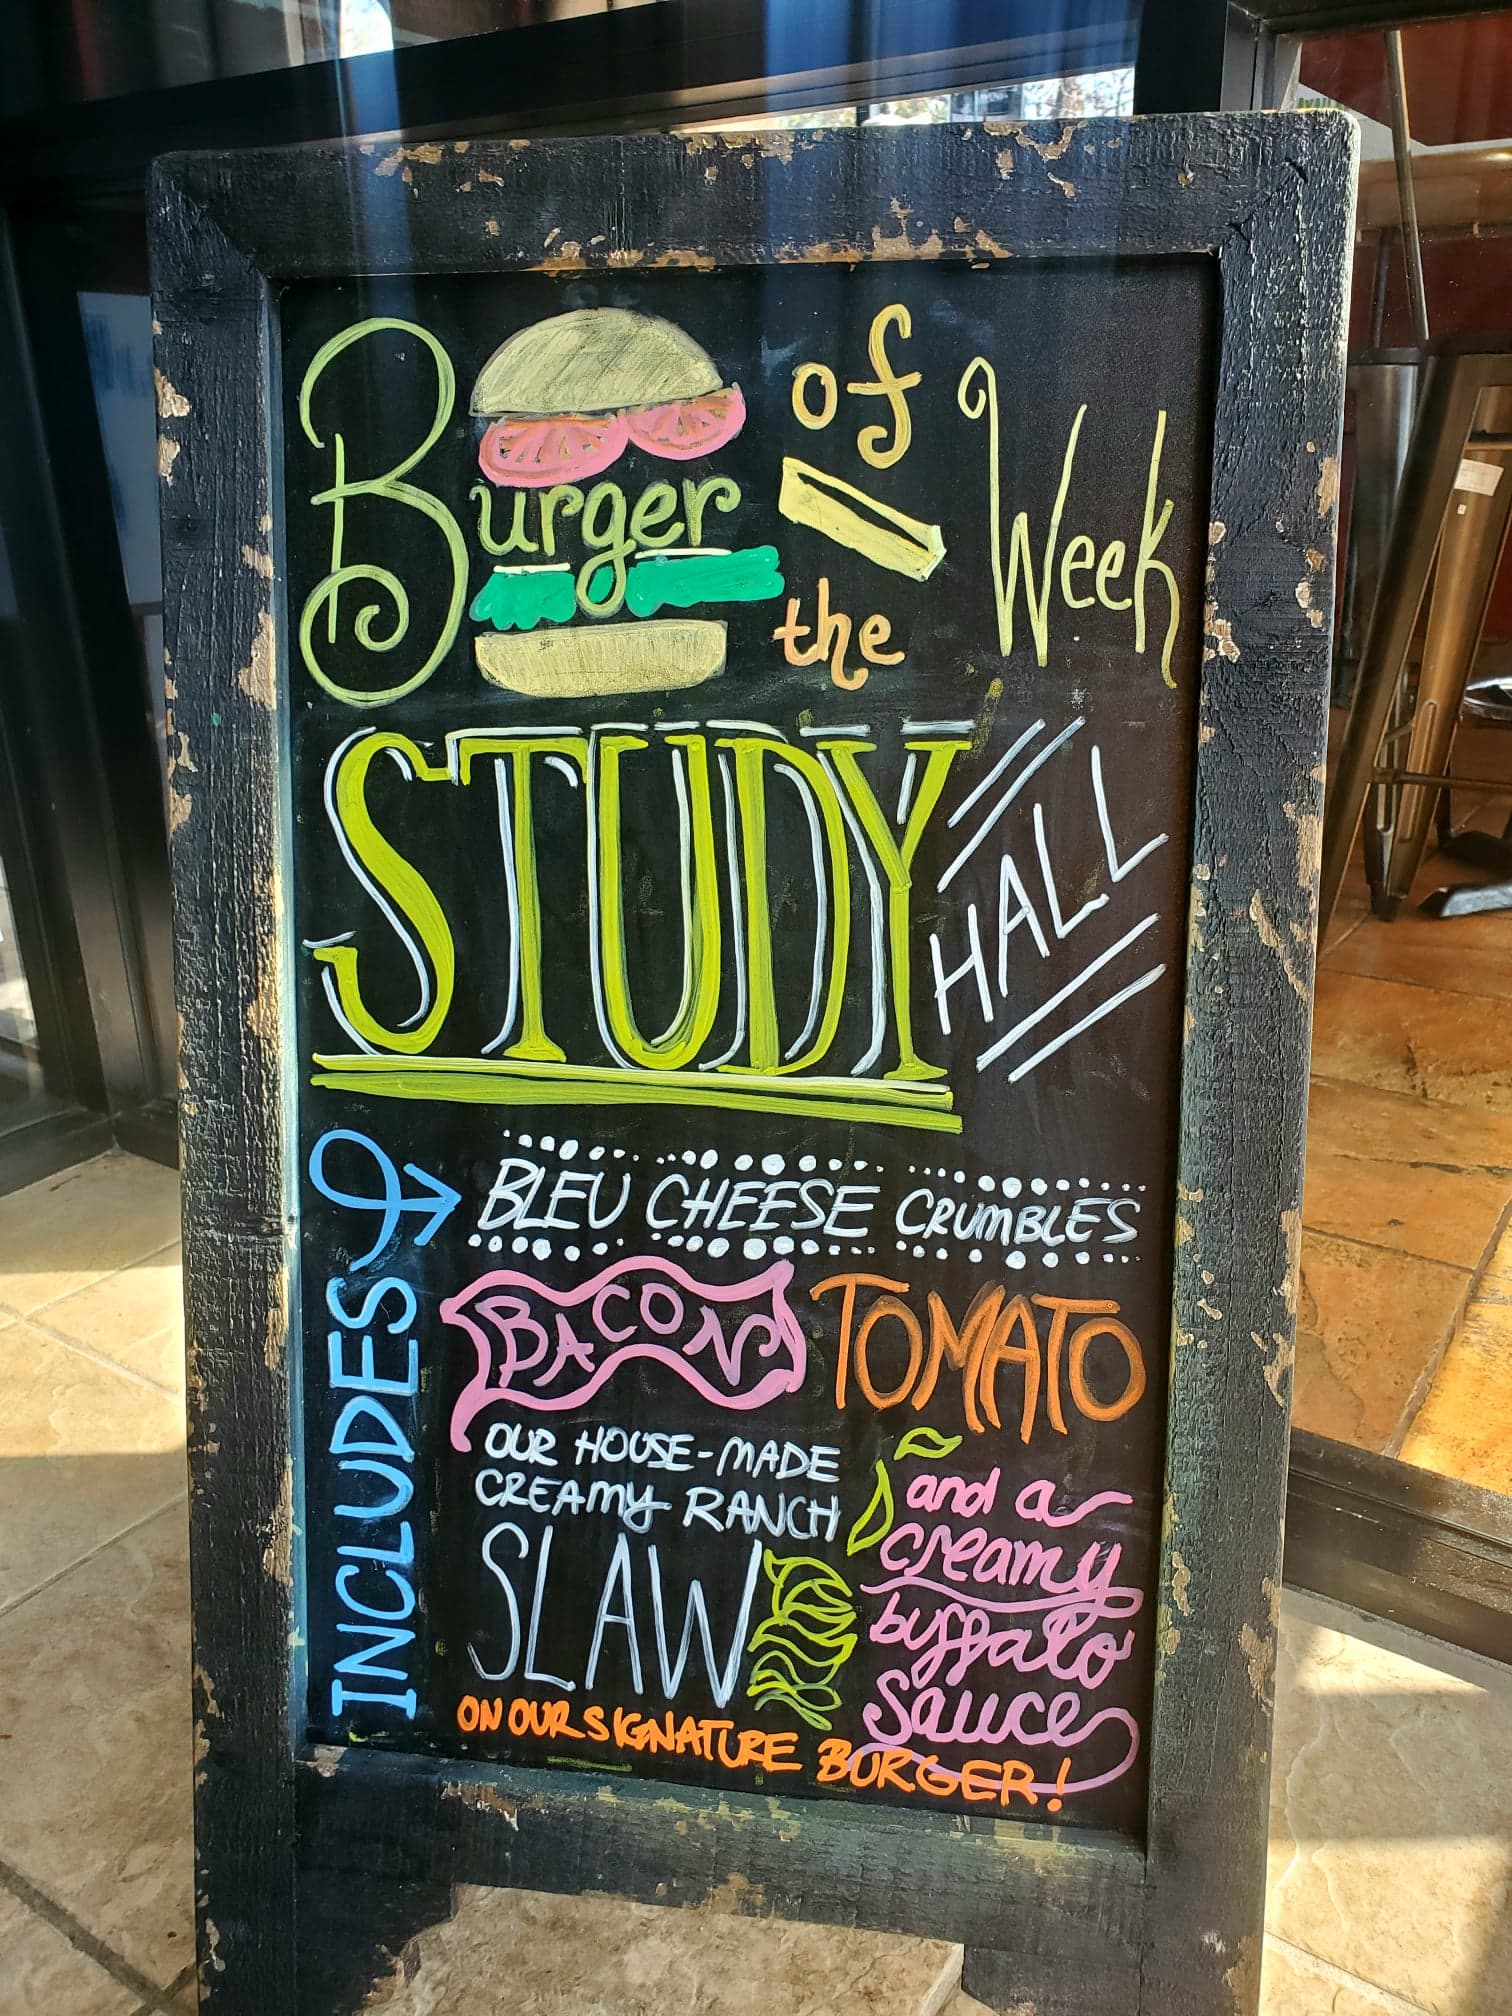 Burger of the Week
STUDY HALL
INCLUDES
BLEU CHEESE CRUMBLES
BACON TOMATO
OUR HOUSE-MADE
CREAMY RANCH
SLAW
and a
creamy
buffalo
sauce
ON OUR SIGNATURE BURGER!